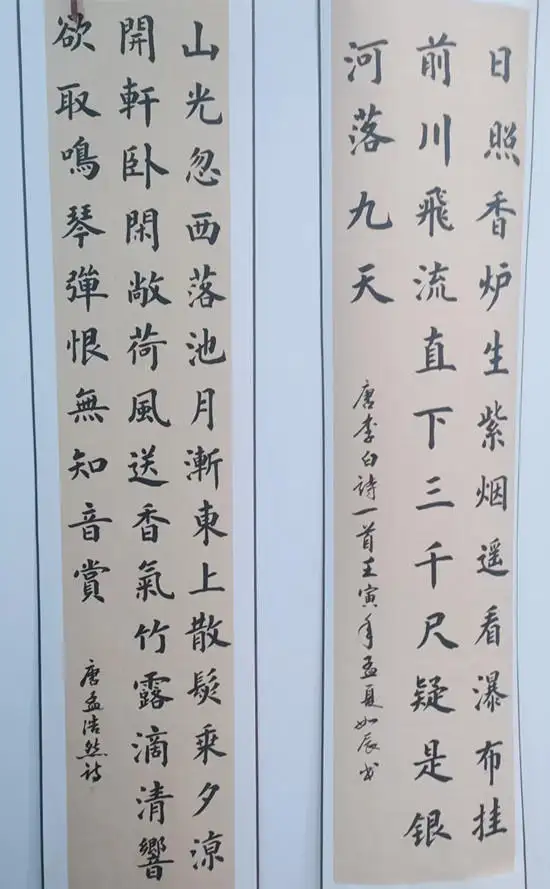 日照香炉生紫烟遥看瀑布挂
前川飛流直下三千尺疑是銀
河落九天
唐李白詩一首壬寅年孟夏如辰书
山光忽西落池月漸東上散髮乘夕涼
開軒卧閑敞荷風送香氣竹露滴清響
欲取鳴琴彈恨無知音賞
唐孟浩然詩